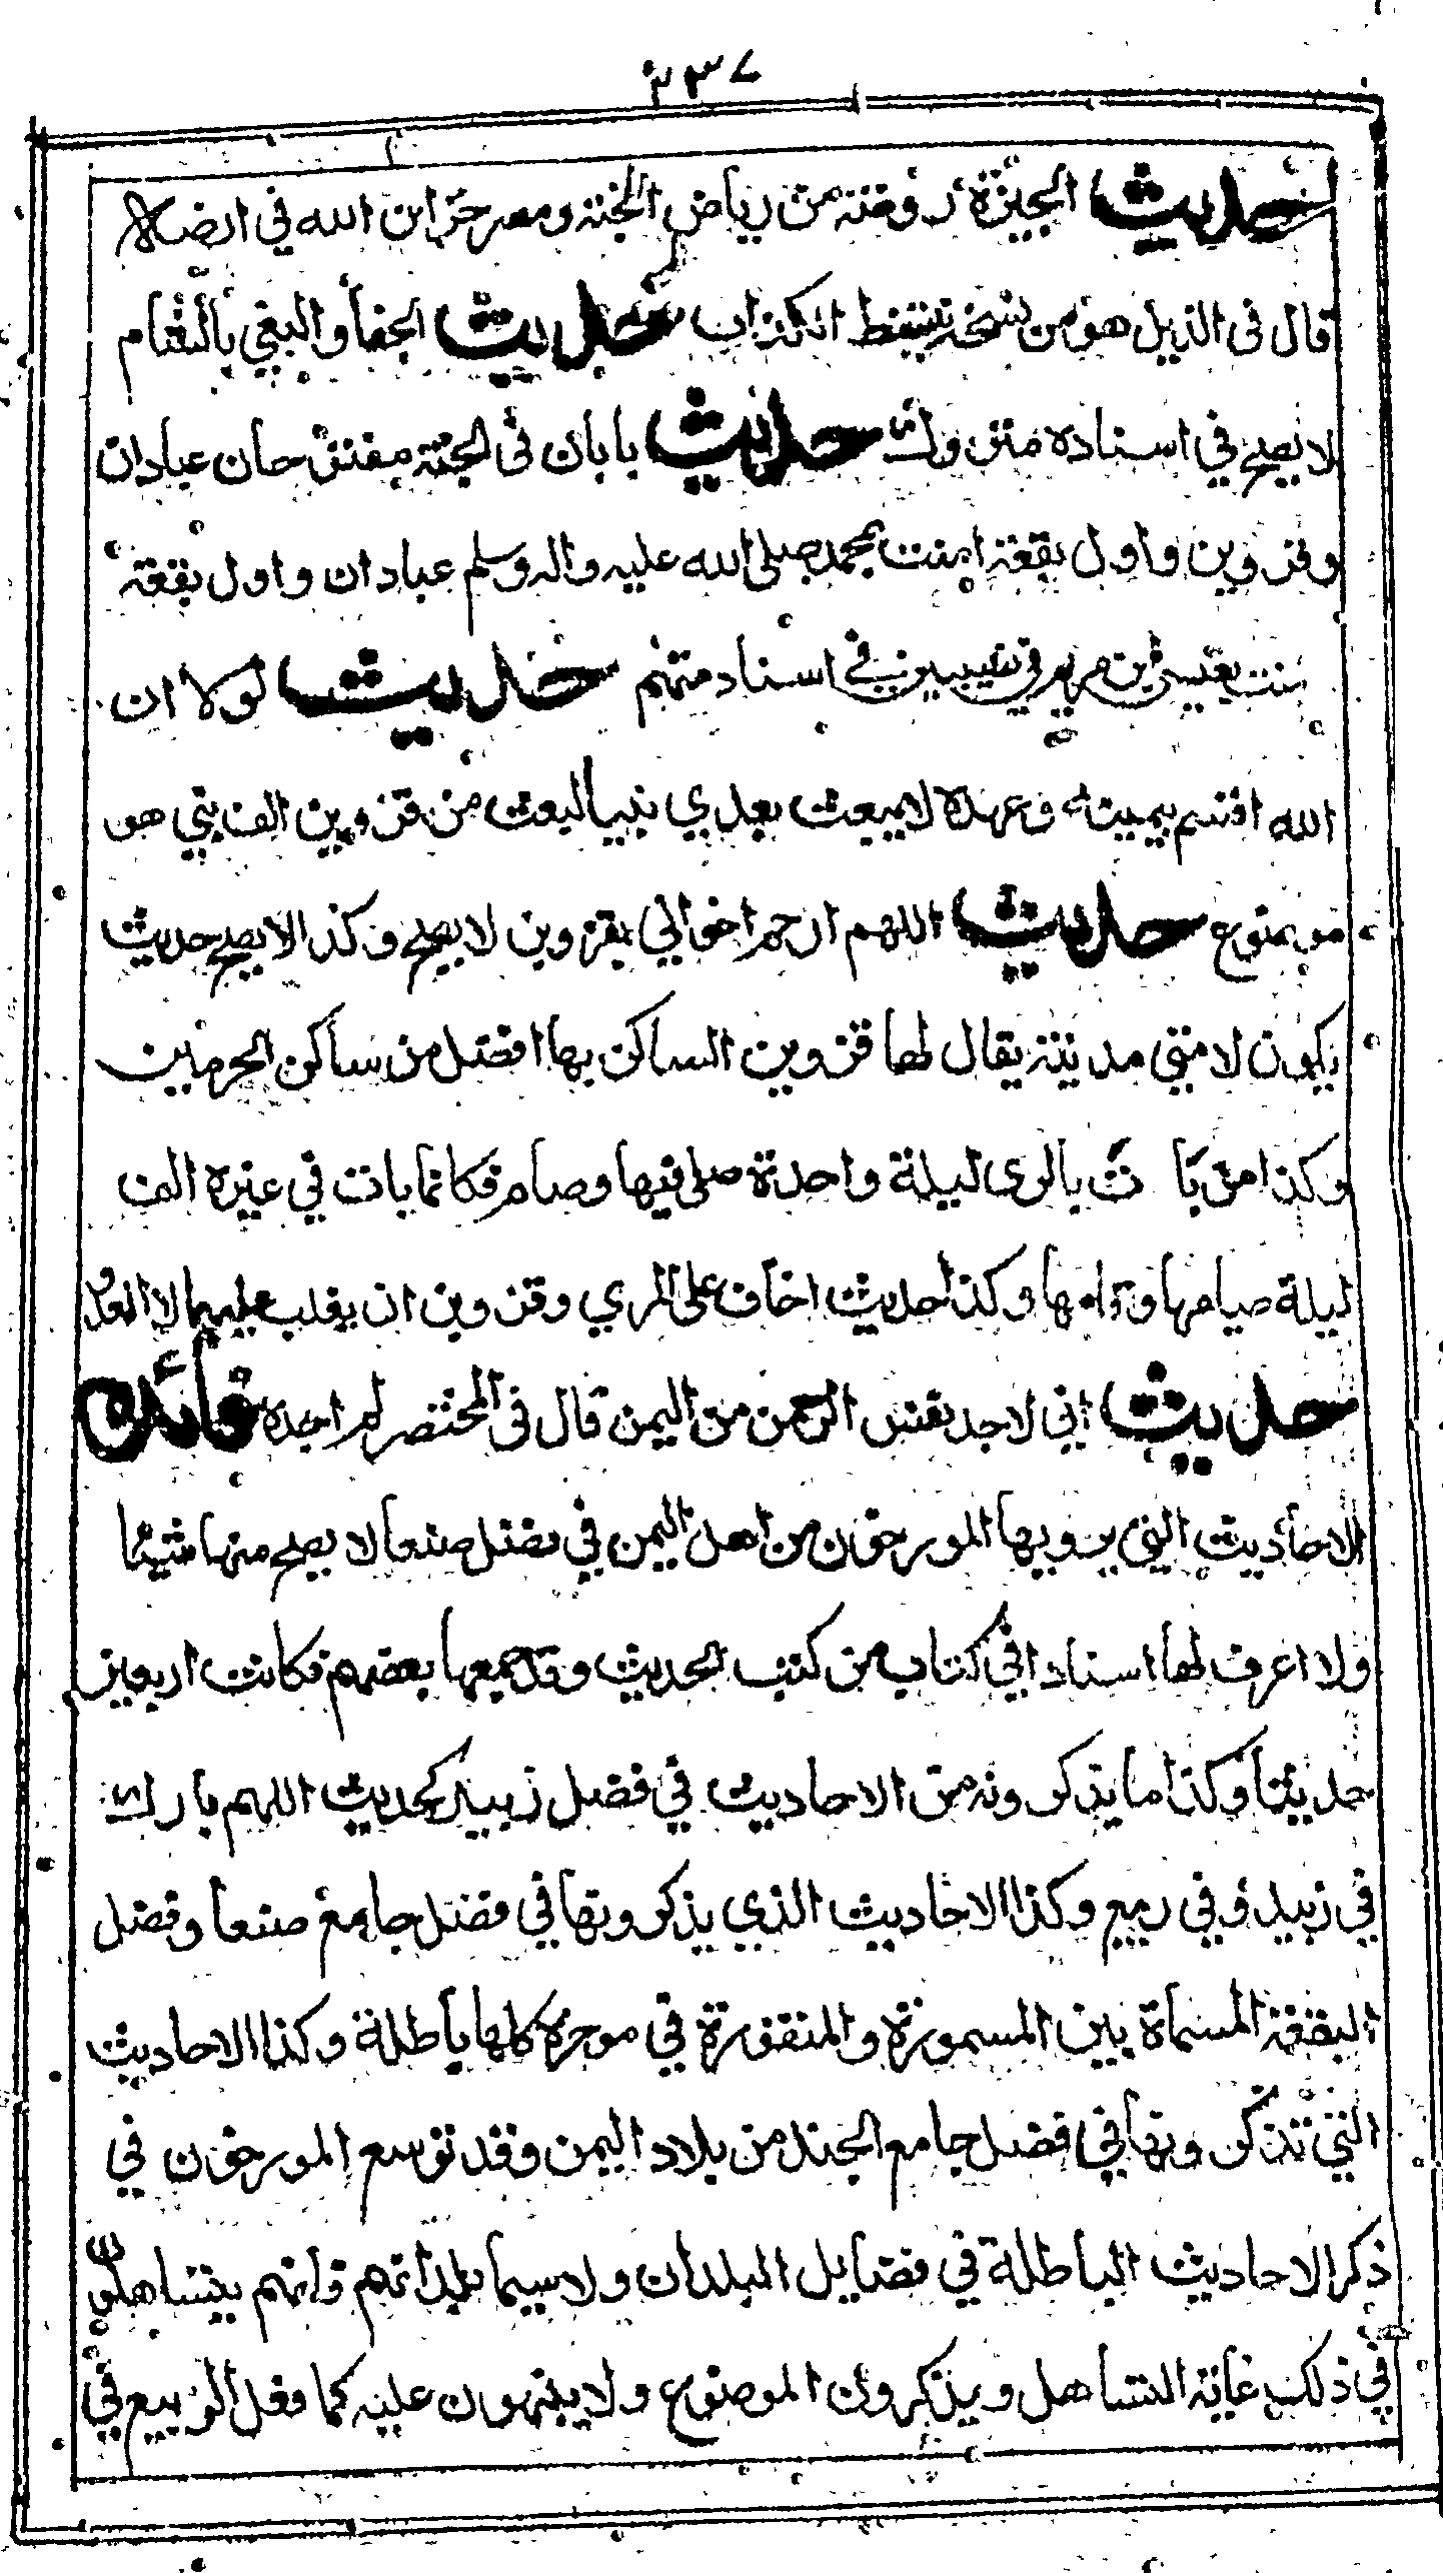 ٢٣٧
حديث الجيزة روضة من رياض الجنة ومصر خزائن الله في ارضه لا
قال في الذيل هو من نسخة نبيط الكذاب حديث الجفا والبغي بالشام
لا يصح في اسناده متروك حديث بابان في الجنة مفتوحان عبادان
وقزوين واول بقعة امنت بمحمد صلى الله عليه واله وسلم عبادان واول بقعة
امنت بعيسى بن مريم نصيبين في اسناد متهم حديث لولا ان
الله اقسم بيمينه وعهده لا يبعث بعدي نبيا لبعث من قزوين الف نبي هو
موضوع حديث اللهم ارحم اخواني بقزوين لا يصح وكذا لا يصح حديث
يكون لامتي مدينة يقال لها قزوين الساكن بها افضل من ساكن الحرمين
وكذا من بات بالري ليلة واحدة صلى فيها وصام فكانما بات في غيره الف
ليلة صيامها وقيامها وكذا حديث اخاف على الري وقزوين ان يغلب عليهما العدو
حديث اني لاجد نفس الرحمن من اليمن قال في المختصر لم اجده فائدة
الاحاديث التي يرويها المورخون من اهل اليمن في فضل صنعا لا يصح منها شيئا
ولا اعرف لها اسنادا في كتاب من كتب الحديث وقد جمعها بعضهم فكانت اربعين
حديثا وكذا ما يذكرونه من الاحاديث في فضل زبيد كحديث اللهم بارك
في زبيد وفي رمع وكذا الاحاديث الذي يذكرونها في فضل جامع صنعا وفضل
البقعة المسماة بين المسمورة والمنقورة في موخره كلها باطلة وكذا الاحاديث
التي تذكرونها في فضل جامع الجند من بلاد اليمن وقد توسع المورخون في
ذكر الاحاديث الباطلة في فضايل البلدان ولا سيما بلدانهم فانهم يتساهلون
في ذلك غاية التساهل ويذكرون الموضوع ولا ينبهون عليه كما فعل الربيع في